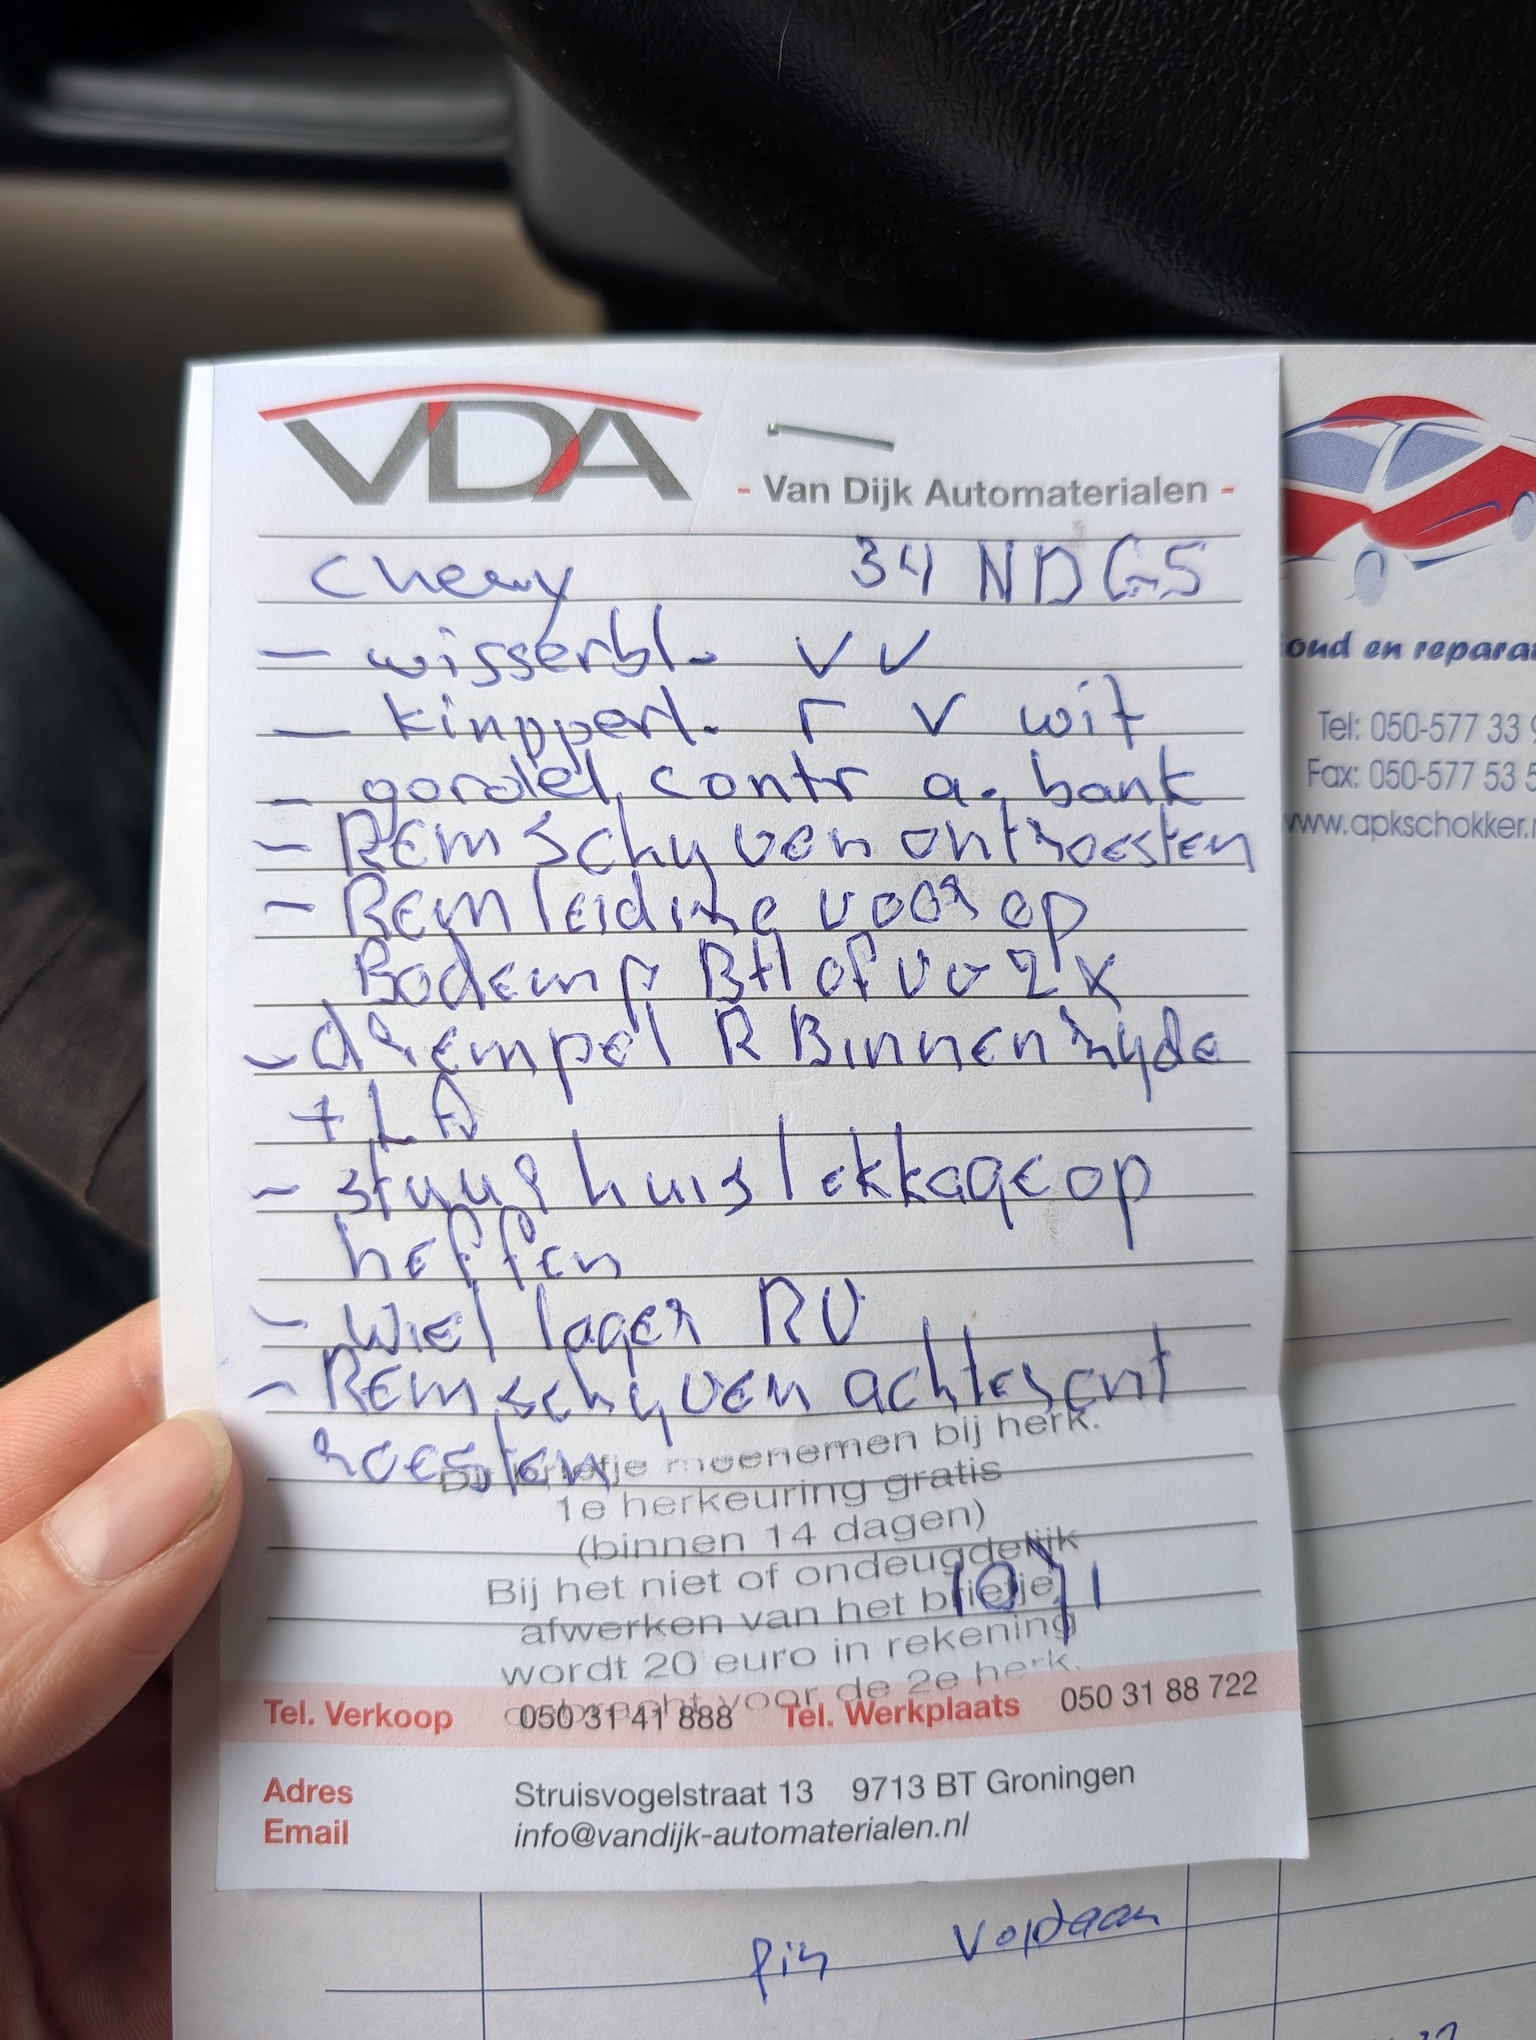 VDA
- Van Dijk Automaterialen -
Chevy 34 NDGS
- wisserbl. v v
- kinpperl. r v wit
- gordel contr a. bank
- Remschyven ontroesten
- Remleiding voor op
Bodemp BH of vo 2x
- drempel R Binnenzyde
+ LA
- stuurhuis lekkage op
heffen
- Wiel lager RV
- Remschyven achter ont
roesten
Dit briefje meenemen bij herk.
1e herkeuring gratis
(binnen 14 dagen)
Bij het niet of ondeugdelijk
afwerken van het briefje,
wordt 20 euro in rekening
gebracht voor de 2e herk.
Tel. Verkoop 050 31 41 888 Tel. Werkplaats 050 31 88 722
Adres Struisvogelstraat 13 9713 BT Groningen
Email info@vandijk-automaterialen.nl
oud en repara
Tel: 050-577 33
Fax: 050-577 53 5
www.apkschokker.
pin voldaan